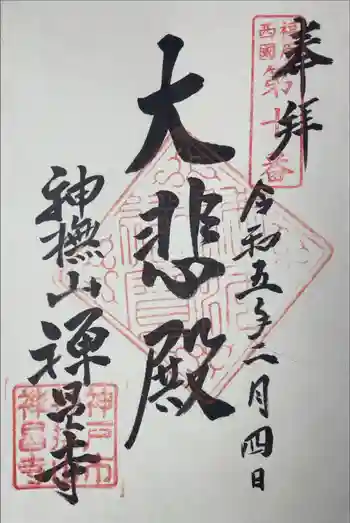 奉拝
福原
西國
第十番
令和五年二月四日
大悲殿
神撫山 禅昌寺
神戸市
禅昌寺